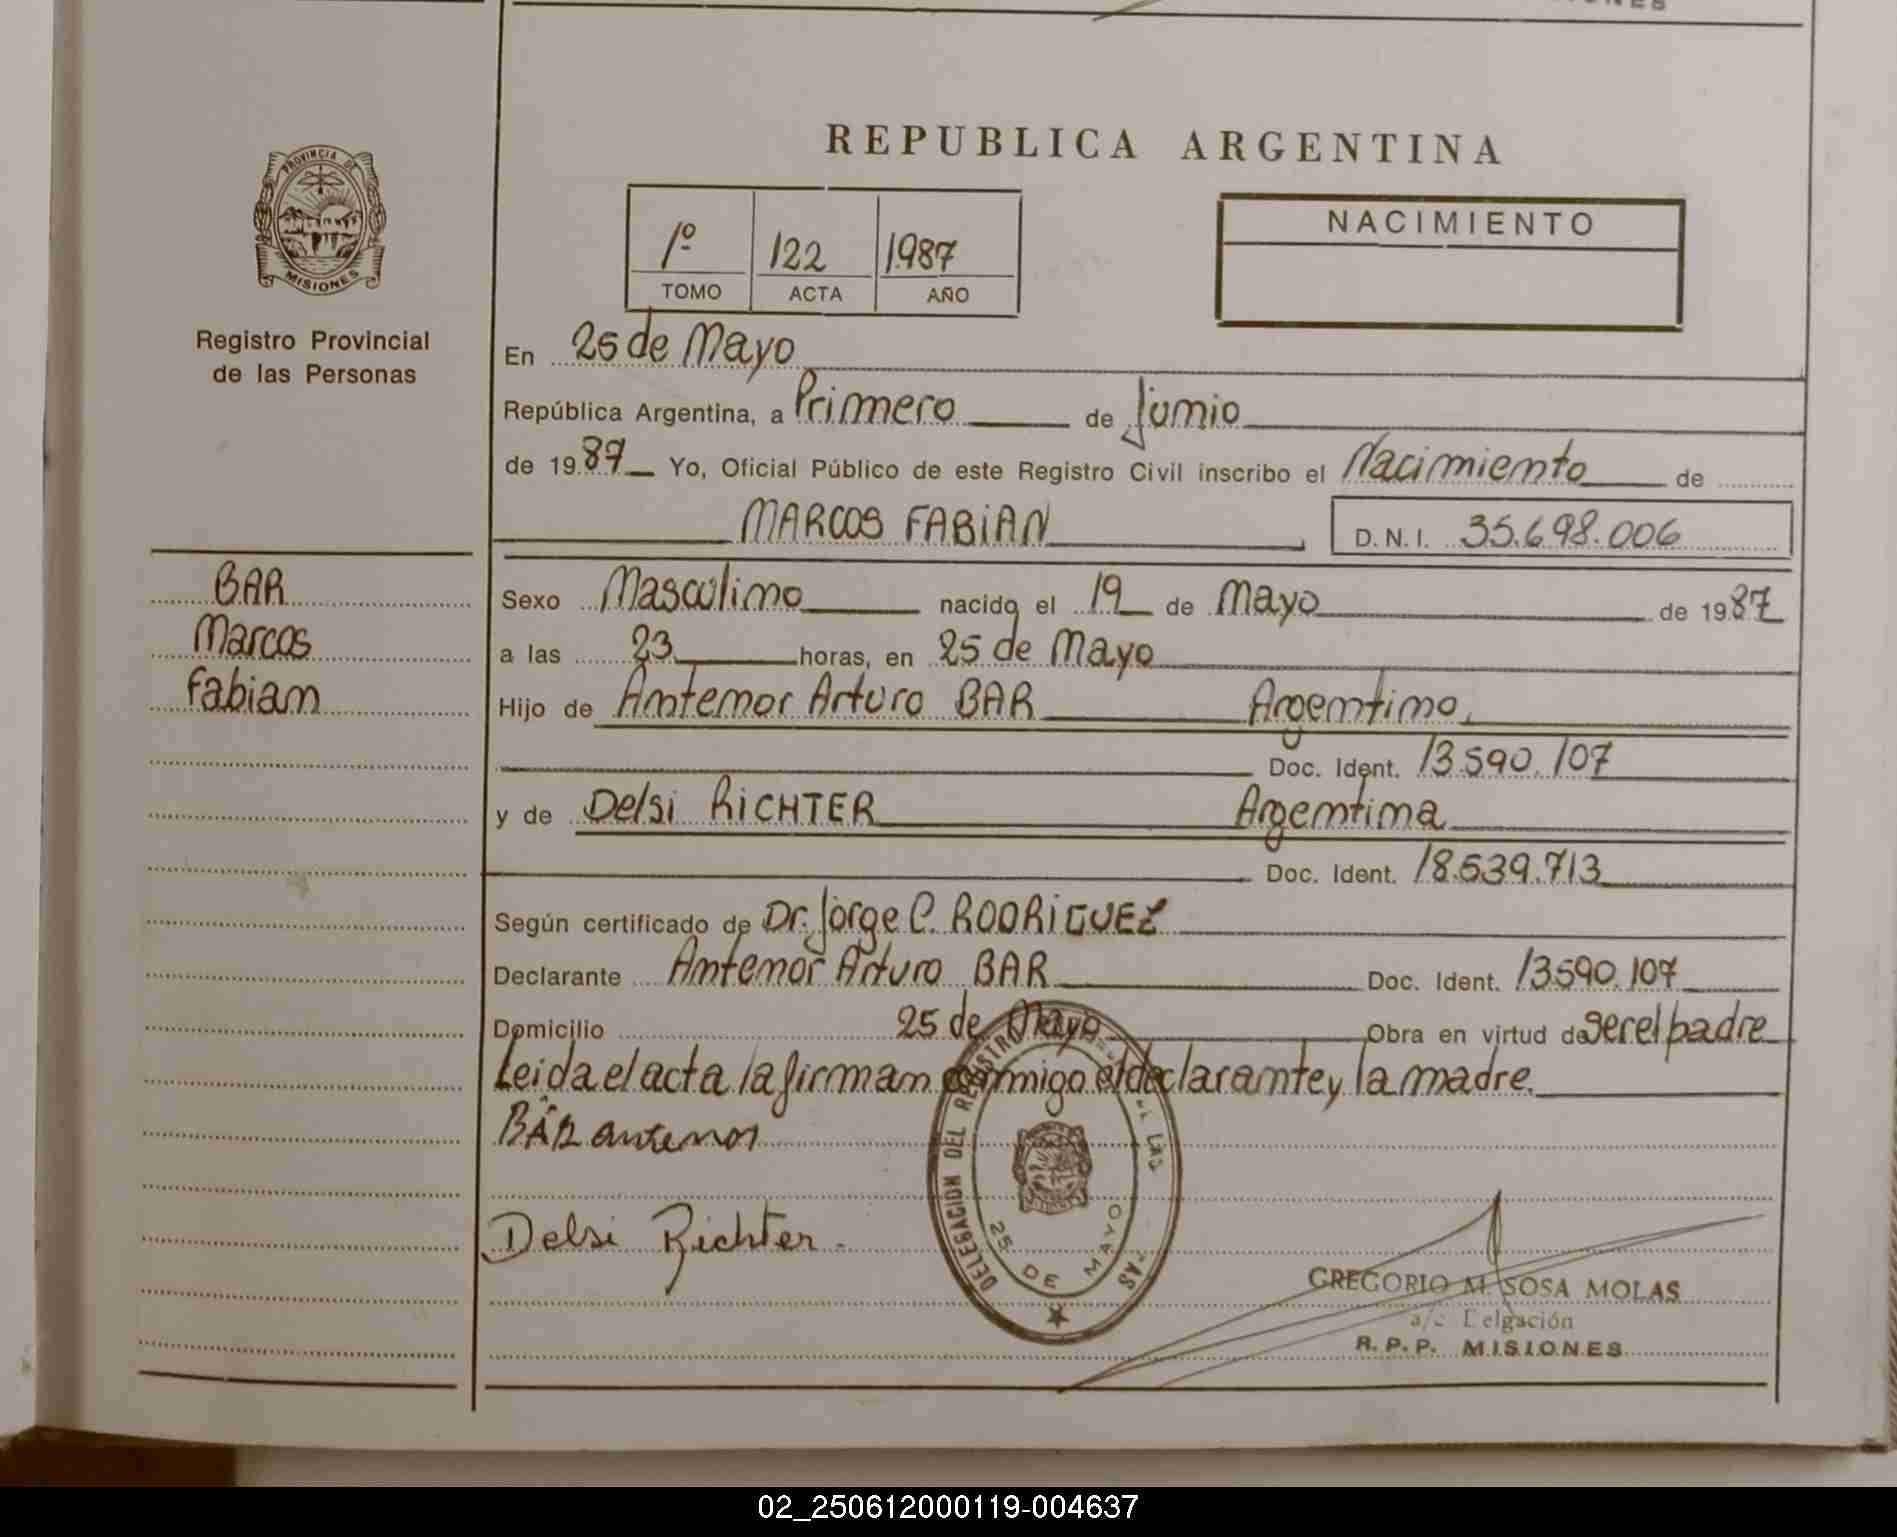 REPUBLICA ARGENTINA
PROVINCIA DE
MISIONES
Registro Provincial
de las Personas
1º 122 1987
TOMO ACTA AÑO
NACIMIENTO
En 25 de Mayo
República Argentina, a Primero de Junio
de 1987 Yo, Oficial Público de este Registro Civil inscribo el Nacimiento de
MARCOS FABIAN D.N.I. 35.698.006
BAR
Marcos
Fabian
Sexo Masculino nacido el 19 de Mayo de 1987
a las 23 horas, en 25 de Mayo
Hijo de Antenor Arturo BAR Argentino
Doc. Ident. 13.590.107
y de Delsi RICHTER Argentina
Doc. Ident. 18.539.713
Según certificado de Dr. Jorge C. RODRIGUEZ
Declarante Antenor Arturo BAR Doc. Ident. 13590.107
Domicilio 25 de Mayo Obra en virtud de ser el padre
Leida el acta la firman conmigo el declarante y la madre.
BAR antenor
Delsi Richter
DELEGACION DEL REGISTRO LAS
25 DE MAYO
GREGORIO M. SOSA MOLAS
a/c Delgación
R.P.P. MISIONES
02_250612000119-004637